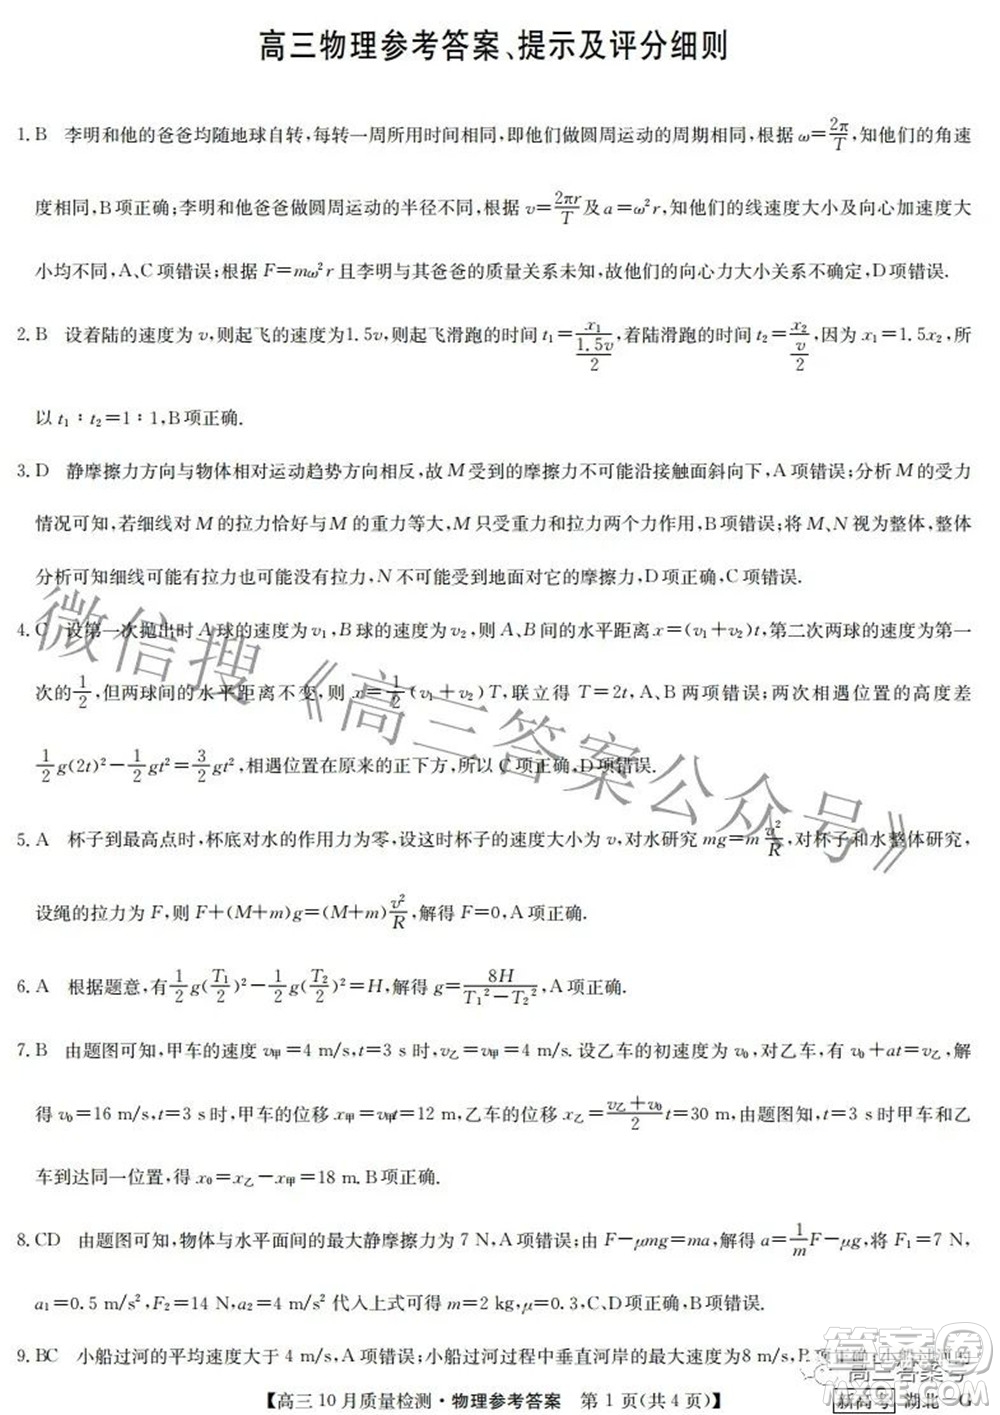 高三物理参考答案、提示及评分细则
1. B 李明和他的爸爸均随地球自转,每转一周所用时间相同,即他们做圆周运动的周期相同,根据 ω=2π/T,知他们的角速
度相同,B项正确;李明和他爸爸做圆周运动的半径不同,根据 v=2πr/T及 a=ω²r,知他们的线速度大小及向心加速度大
小均不同,A、C项错误;根据 F=mω²r 且李明与其爸爸的质量关系未知,故他们的向心力大小关系不确定,D项错误.
2. B 设着陆的速度为 v,则起飞的速度为1.5v,则起飞滑跑的时间 t₁=x₁/(1.5v/2),着陆滑跑的时间 t₂=x₂/(v/2),因为 x₁=1.5x₂,所
以 t₁∶t₂=1∶1,B项正确.
3. D 静摩擦力方向与物体相对运动趋势方向相反,故 M 受到的摩擦力不可能沿接触面斜向下,A项错误;分析 M 的受力
情况可知,若细线对 M 的拉力恰好与 M 的重力等大,M 只受重力和拉力两个力作用,B项错误;将 M、N 视为整体,整体
分析可知细线可能有拉力也可能没有拉力,N 不可能受到地面对它的摩擦力,D项正确,C项错误.
4. C 设第一次抛出时 A 球的速度为 v₁,B 球的速度为 v₂,则 A、B 间的水平距离 x=(v₁+v₂)t,第二次两球的速度为第一
次的1/2,但两球间的水平距离不变,则 x=1/2(v₁+v₂)T,联立得 T=2t,A、B 两项错误;两次相遇位置的高度差
1/2g(2t)²-1/2gt²=3/2gt²,相遇位置在原来的正下方,所以 C项正确,D项错误.
5. A 杯子到最高点时,杯底对水的作用力为零,设这时杯子的速度大小为 v,对水研究 mg=m v²/R,对杯子和水整体研究,
设绳的拉力为 F,则 F+(M+m)g=(M+m)v²/R,解得 F=0,A项正确.
6. A 根据题意,有1/2g(T₁/2)²-1/2g(T₂/2)²=H,解得 g=8H/(T₁²-T₂²),A项正确.
7. B 由题图可知,甲车的速度 v甲=4 m/s,t=3 s时,v乙=4 m/s.设乙车的初速度为 v₀,对乙车,有 v₀+at=v乙,解
得 v₀=16 m/s,t=3 s时,甲车的位移 x甲=v甲t=12 m,乙车的位移 x乙=(v乙+v₀)/2 t=30 m,由题图知,t=3 s时甲车和乙
车到达同一位置,得 x₀=x乙-x甲=18 m,B项正确.
8. CD 由题图可知,物体与水平面间的最大静摩擦力为 7 N,A项错误;由 F-μmg=ma,解得 a=1/m F-μg,将 F₁=7 N,
a₁=0.5 m/s²,F₂=14 N,a₂=4 m/s² 代入上式可得 m=2 kg,μ=0.3,C、D项正确,B项错误.
9. BC 小船过河的平均速度大于 4 m/s,A项错误;小船过河过程中垂直河岸的最大速度为8 m/s,B项正确;小船过河的
【高三10月质量检测·物理参考答案 第 1 页(共 4 页)】
新高考 湖北—G
微信搜《高三答案公众号》
高三答案号
答案圈